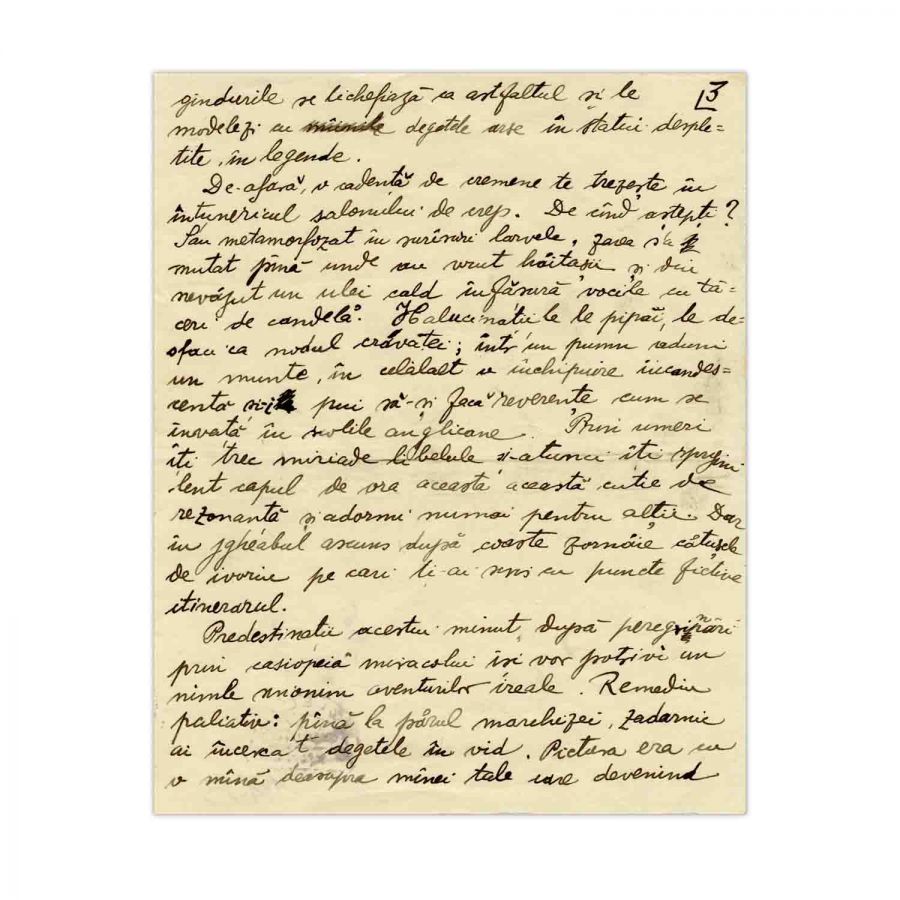 3
gîndurile se lichefiază ca astfaltul și le
modelezi cu mîinile degetele arse în statui desple=
tite, în legende.
De-afară, o cadență de cremene te trezește în
întunericul salonului de crep. De cînd aștepți?
S'au metamorfozat în surîsuri larvele, zarea s'a
mutat pînă unde au vrut hăitașii și din
nevăzut un ulei cald înfășură vocile cu tă=
ceri de candelă. Halucinațiile le pipăi, le des=
faci ca nodul crăvatei; într'un pumn aduni
un munte, în celălalt o închipuire incandes=
centă și-i pui să-și facă reverențe cum se
învață în școlile anglicane. Prin umeri
îți trec miriade libelule și-atunci îți sprijini
lent capul de ora aceasta această cutie de
rezonanță și adormi numai pentru alții. Dar
în jgheabul ascuns după coaste zornăie cătușele
de ivoriu pe cari ți-ai scris cu puncte fictive
itinerarul.
Predestinații acestui minut, după peregrinări
prin casiopeia miracolului își vor potrivi un
nimb anonim aventurilor ireale. Remediu
paliativ: pînă la părul marchizei, zadarnic
ai încercat degetele în vid. Pictura era cu
o mînă deasupra mînei tale care devenind